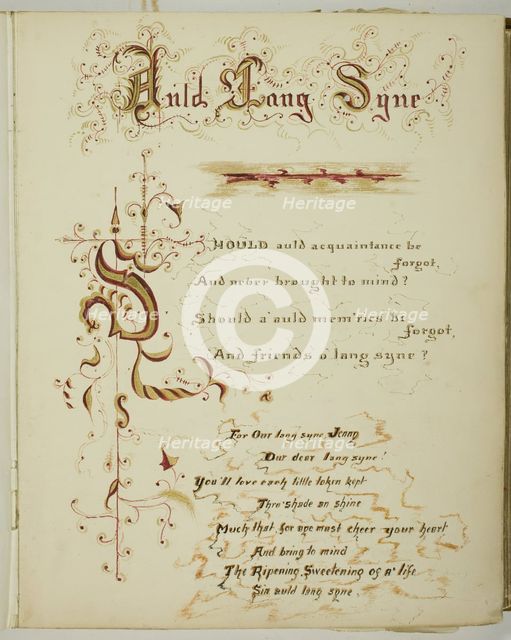 Auld Lang Syne
SHOULD auld acquaintance be
forgot,
And never brought to mind?
Should a' auld mem'ries be
forgot,
And friends o' lang syne?
For Our lang syne Jenny
Our dear lang syne!
You'll love each little token kept
Thro' shade an shine
Much that for aye must cheer your heart
And bring to mind
The Ripening Sweetening of a' life
Sin auld lang syne.
Heritage
Heritage
Heritage
Heritage
Heritage
Heritage
Heritage
Heritage
Heritage